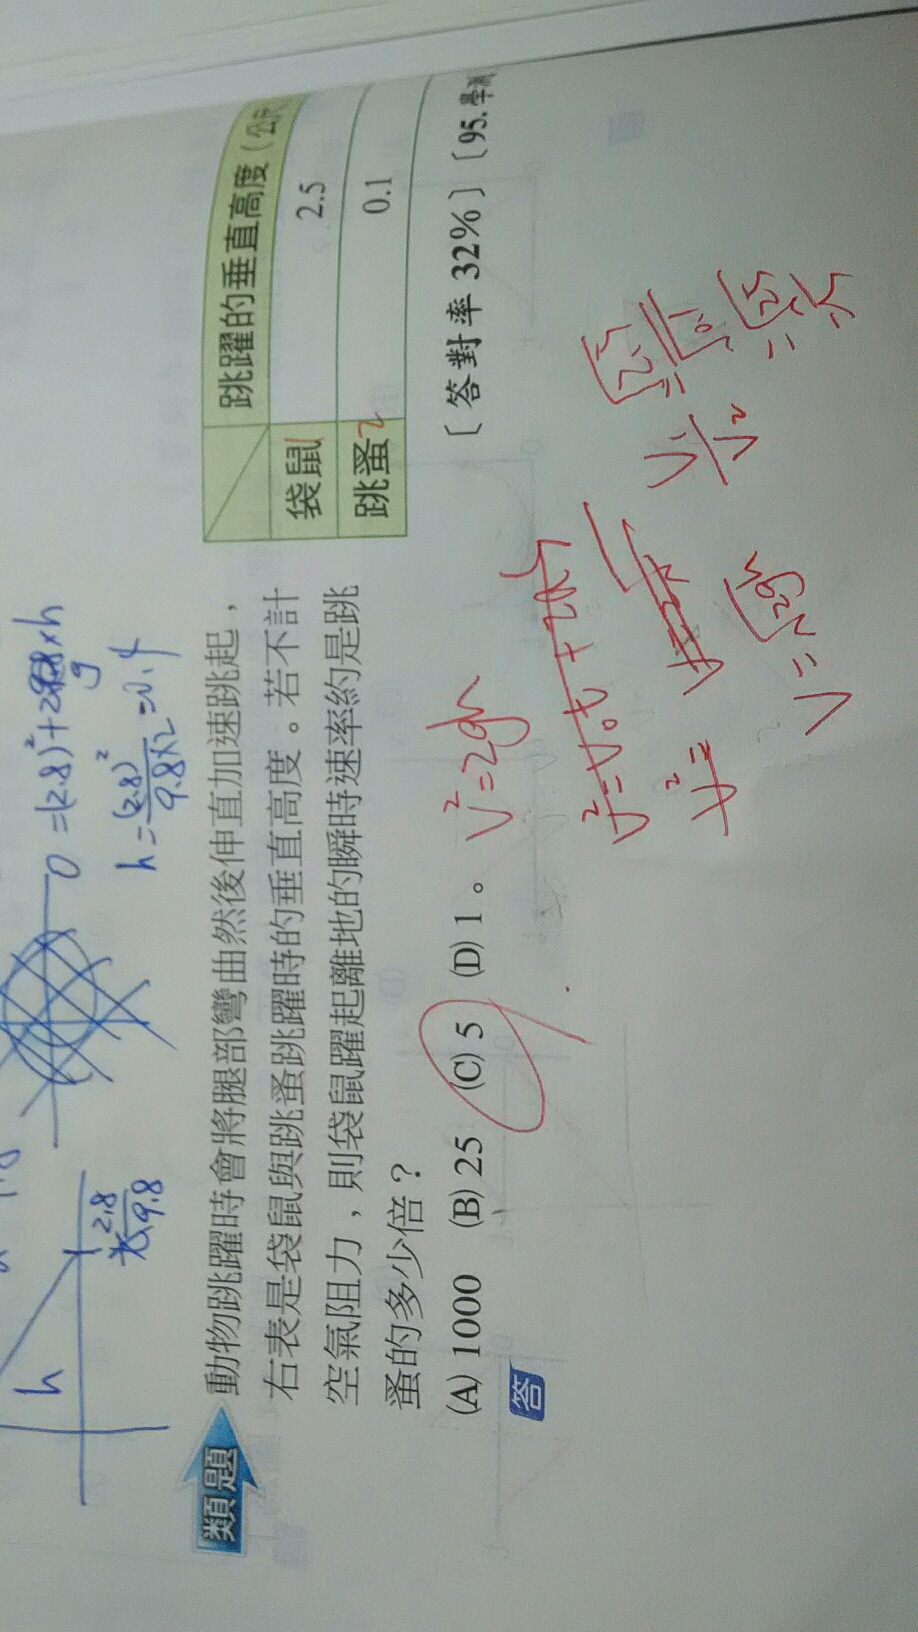 0 = (2.8)² + 2 g × h
h = (2.8)² / 9.8×2 = 0.4
h
2.8
9.8
類題 動物跳躍時會將腿部彎曲然後伸直加速跳起，
右表是袋鼠與跳蚤跳躍時的垂直高度。若不計
空氣阻力，則袋鼠躍起離地的瞬時速率約是跳
蚤的多少倍？
(A) 1000 (B) 25 (C) 5 (D) 1。
跳躍的垂直高度（公尺
袋鼠 1 2.5
跳蚤 2 0.1
〔答對率 32%〕〔95.學測
答
V² = 2gh
V² =
V = √2gh
V₁/V₂ = √2.5/√0.1
= √25
= 5